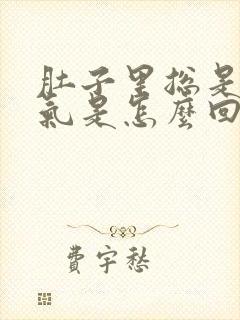 肚子里總是
氣是怎麼回
費宇愁